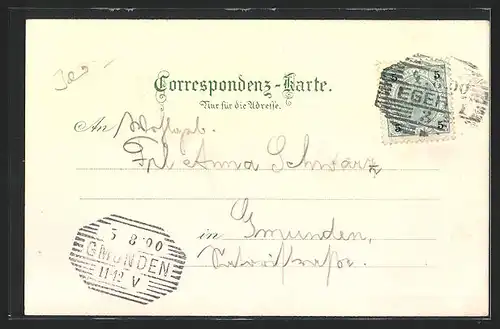 Correspondenz-Karte.
Nur für die Adresse.
An Wohlgeb.
Frl Anna Schwarz
in Gmunden,
5 5
5 5
EGER
5 8 00
GMUNDEN
11-12 V